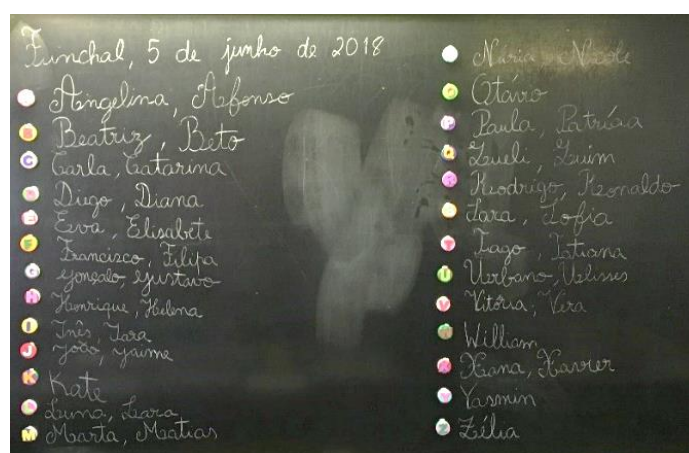 Funchal, 5 de junho de 2018
A Angelina, Afonso
B Beatriz, Beto
C Carla, Catarina
D Diogo, Diana
E Eva, Elisabete
F Francisco, Filipa
G Gonçalo, Gustavo
H Henrique, Helena
I Inês, Iara
J João, Jaime
K Kate
L Luna, Lara
M Marta, Matias
Núria, Nicole
O Otávio
P Paula, Patrícia
Q Queli, Quim
R Rodrigo, Ronaldo
S Sara, Sofia
T Tiago, Tatiana
U Urbano, Ulisses
V Vitória, Vera
W William
X Xana, Xavier
Y Yasmin
Z Zélia